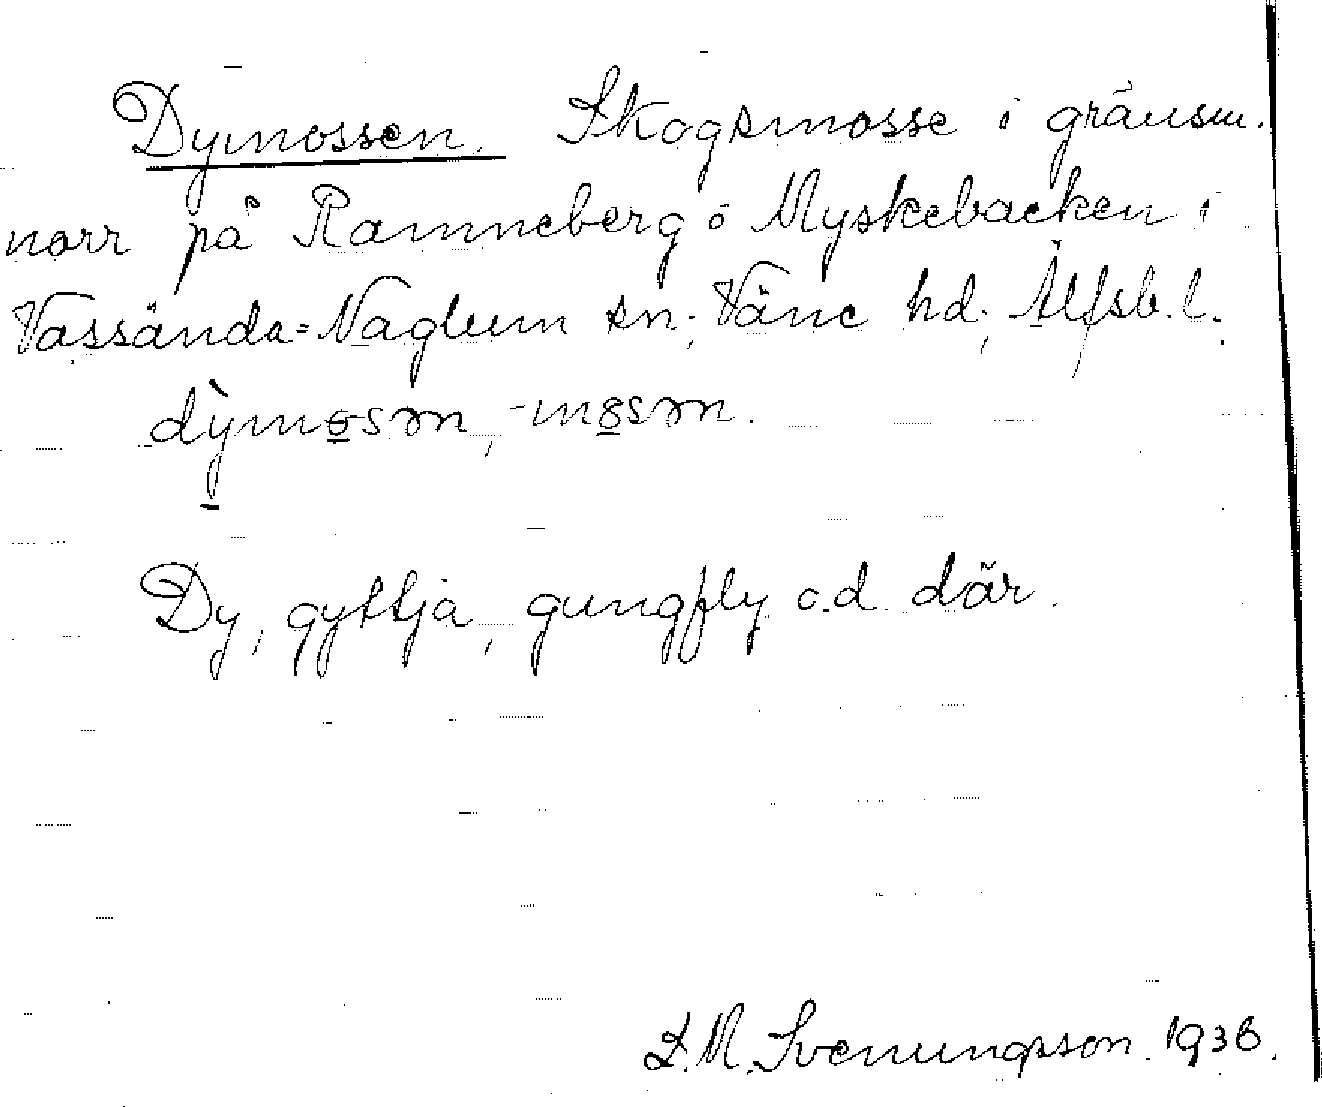 Dymossen. Skogsmosse i gränsen.
norr på Ramneberg o Myskebacken i
Vassända=Naglum sn; Väne hd; Älfsb. l.
dỳmo̲sən, -mo̲sən.
Dy, gyttja, gungfly o.d. där.
L.M. Svenungsson. 1936.